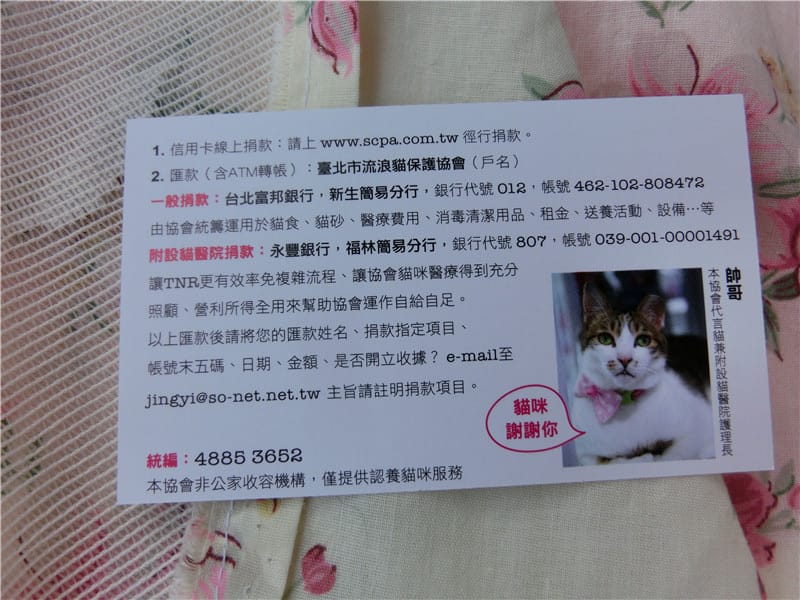 1. 信用卡線上捐款：請上 www.scpa.com.tw 徑行捐款。
2. 匯款（含ATM轉帳）：臺北市流浪貓保護協會（戶名）
一般捐款：台北富邦銀行，新生簡易分行，銀行代號 012，帳號 462-102-808472
由協會統籌運用於貓食、貓砂、醫療費用、消毒清潔用品、租金、送養活動、設備…等
附設貓醫院捐款：永豐銀行，福林簡易分行，銀行代號 807，帳號 039-001-00001491
讓TNR更有效率免複雜流程、讓協會貓咪醫療得到充分
照顧、營利所得全用來幫助協會運作自給自足。
以上匯款後請將您的匯款姓名、捐款指定項目、
帳號末五碼、日期、金額、是否開立收據？e-mail至
jingyi@so-net.net.tw 主旨請註明捐款項目。
統編：4885 3652
本協會非公家收容機構，僅提供認養貓咪服務
貓咪
謝謝你
帥哥
本協會代言貓兼附設貓醫院護理長